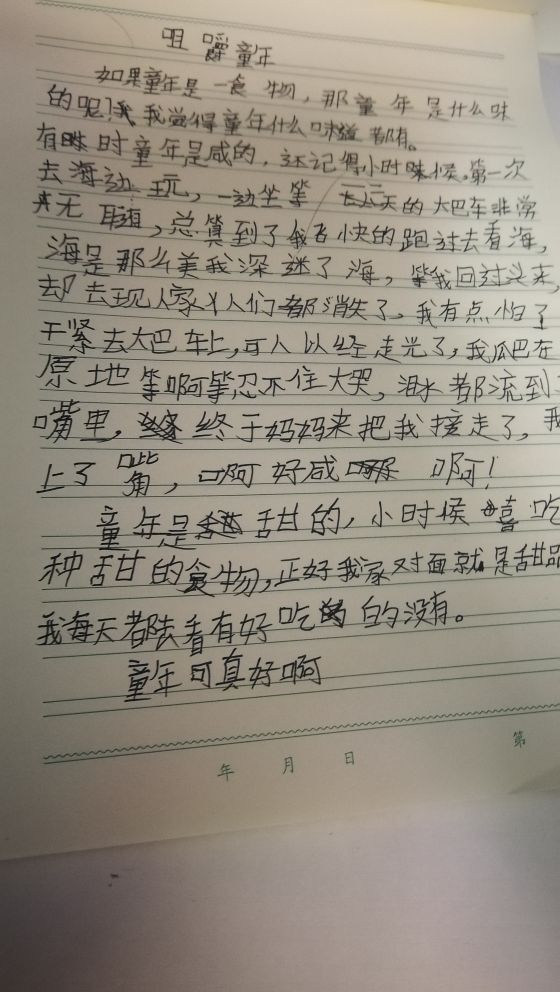 咀嚼童年
如果童年是一食物，那童年是什么味
的呢？我觉得童年什么味道都有。
有时童年是咸的，还记得小时候。第一次
去海边玩，一边坐等的大巴车非常
无聊，总算到了我飞快的跑过去看海，
海是那么美我深迷了海，等我回过头来，
却去现人家人们都消失了，我有点怕了
干紧去大巴车上，可人以经走光了，我瓜巴在
原地等啊等忍不住大哭，泪水都流到
嘴里，终于妈妈来把我接走了，我
上了嘴，啊好咸啊！
童年是甜的，小时候喜吃
种甜的食物，正好我家对面就是甜品
我每天都去看有好吃的没有。
童年可真好啊
年 月 日
第